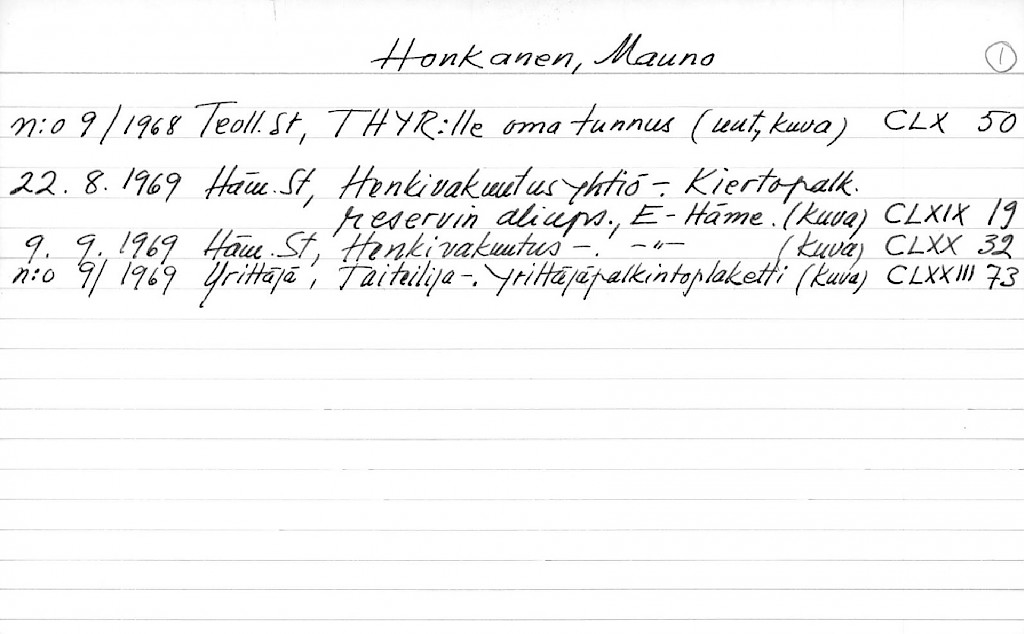 Honkanen, Mauno 1
n:o 9/1968 Teoll. St, THYR:lle oma tunnus (uut, kuva) CLX 50
22. 8. 1969 Häm. St, Henkivakuutusyhtiö -. Kiertopalk.
reservin aliups., E-Häme. (kuva) CLXIX 19
9. 9. 1969 Häm. St, Henkivakuutus -. -"- (kuva) CLXX 32
n:o 9/1969 Yrittäjä, Taiteilija -. Yrittäjäpalkintoplaketti (kuva) CLXXIII 73